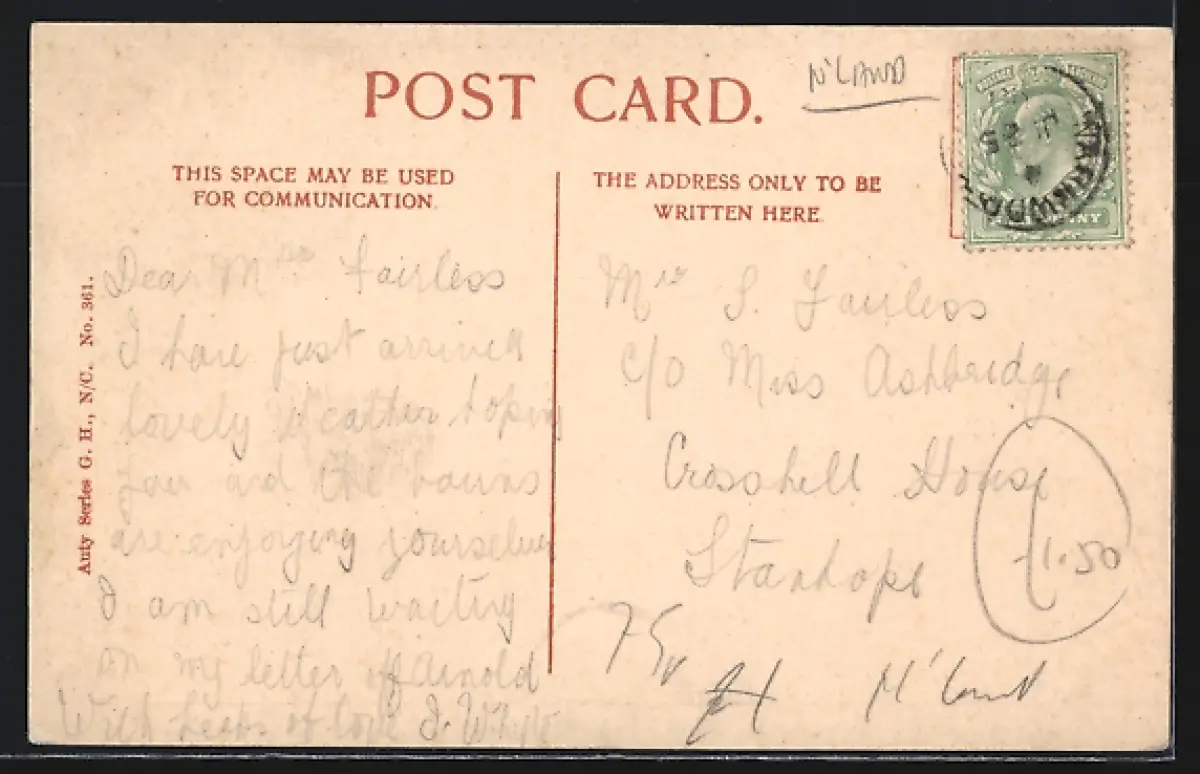 POST CARD.
N'LAND
THIS SPACE MAY BE USED
FOR COMMUNICATION.
THE ADDRESS ONLY TO BE
WRITTEN HERE.
Dear Mrs Fairless
I have just arrived
lovely weather hoping
you and the bairns
are enjoying yourselves
I am still waiting
on my letter off Arnold
With heaps of love J. Whyte
Mrs S. Fairless
c/o Miss Ashbridge
Crosshell House
Stanhope
£1.50
75p
N'Land
Auty Series G. H., N/C. No. 361.